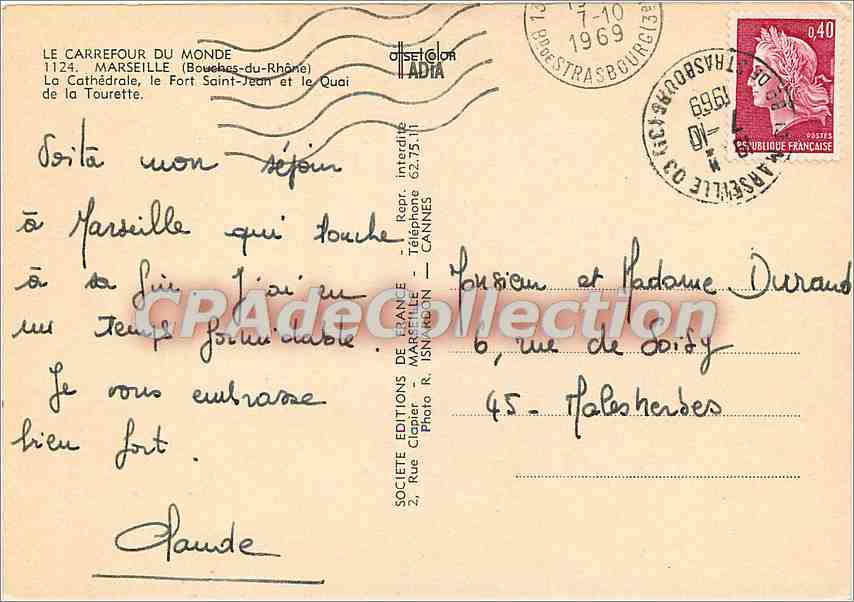 LE CARREFOUR DU MONDE
1124. MARSEILLE (Bouches-du-Rhône)
La Cathédrale, le Fort Saint-Jean et le Quai
de la Tourette.
offsetcolor
ADIA
13
7-10
1969
Rd de STRASBOURG (3e)
0,40
POSTES
REPUBLIQUE FRANÇAISE
MARSEILLE 03
DE STRASBOURG (3e)
7-10
1969
Voilà mon séjour
à Marseille qui touche
à sa fin J'ai eu
un temps formidable.
Je vous embrasse
bien fort.
Claude
SOCIETE EDITIONS DE FRANCE - Repr. interdite
2, Rue Clapier - MARSEILLE - Téléphone 62.75.11
Photo R. ISNARDON — CANNES
Monsieur et Madame Durand
6, rue de Soisy
45 - Malesherbes
CPAdeCollection